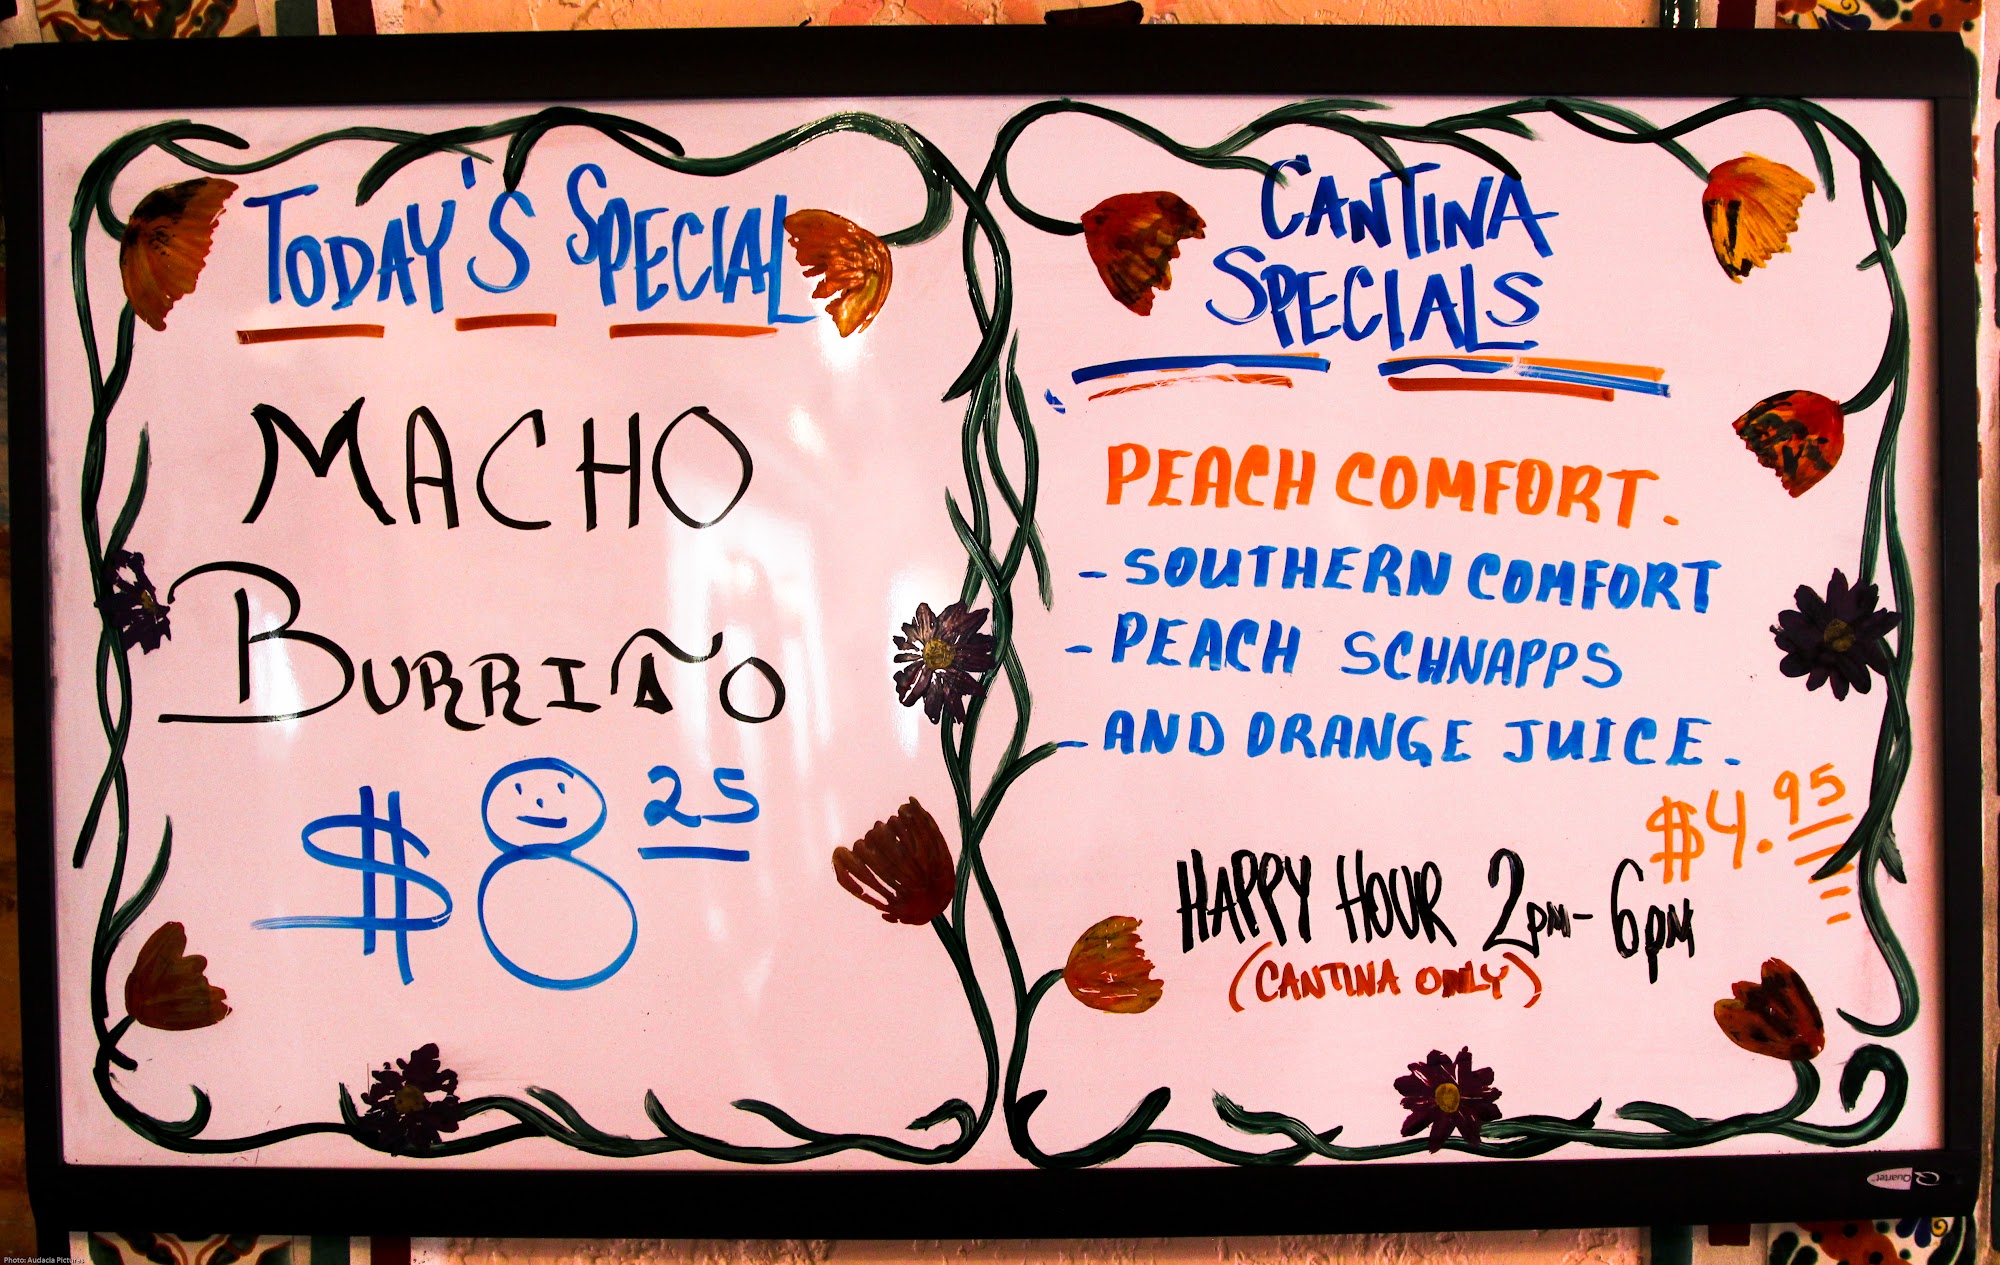 TODAY'S SPECIAL
MACHO
BURRITO
$8 25
CANTINA
SPECIALS
PEACH COMFORT.
- SOUTHERN COMFORT
- PEACH SCHNAPPS
- AND ORANGE JUICE.
$4.95
HAPPY HOUR 2PM - 6PM
(CANTINA ONLY)
Quartet
Photo: Audacia Pictures